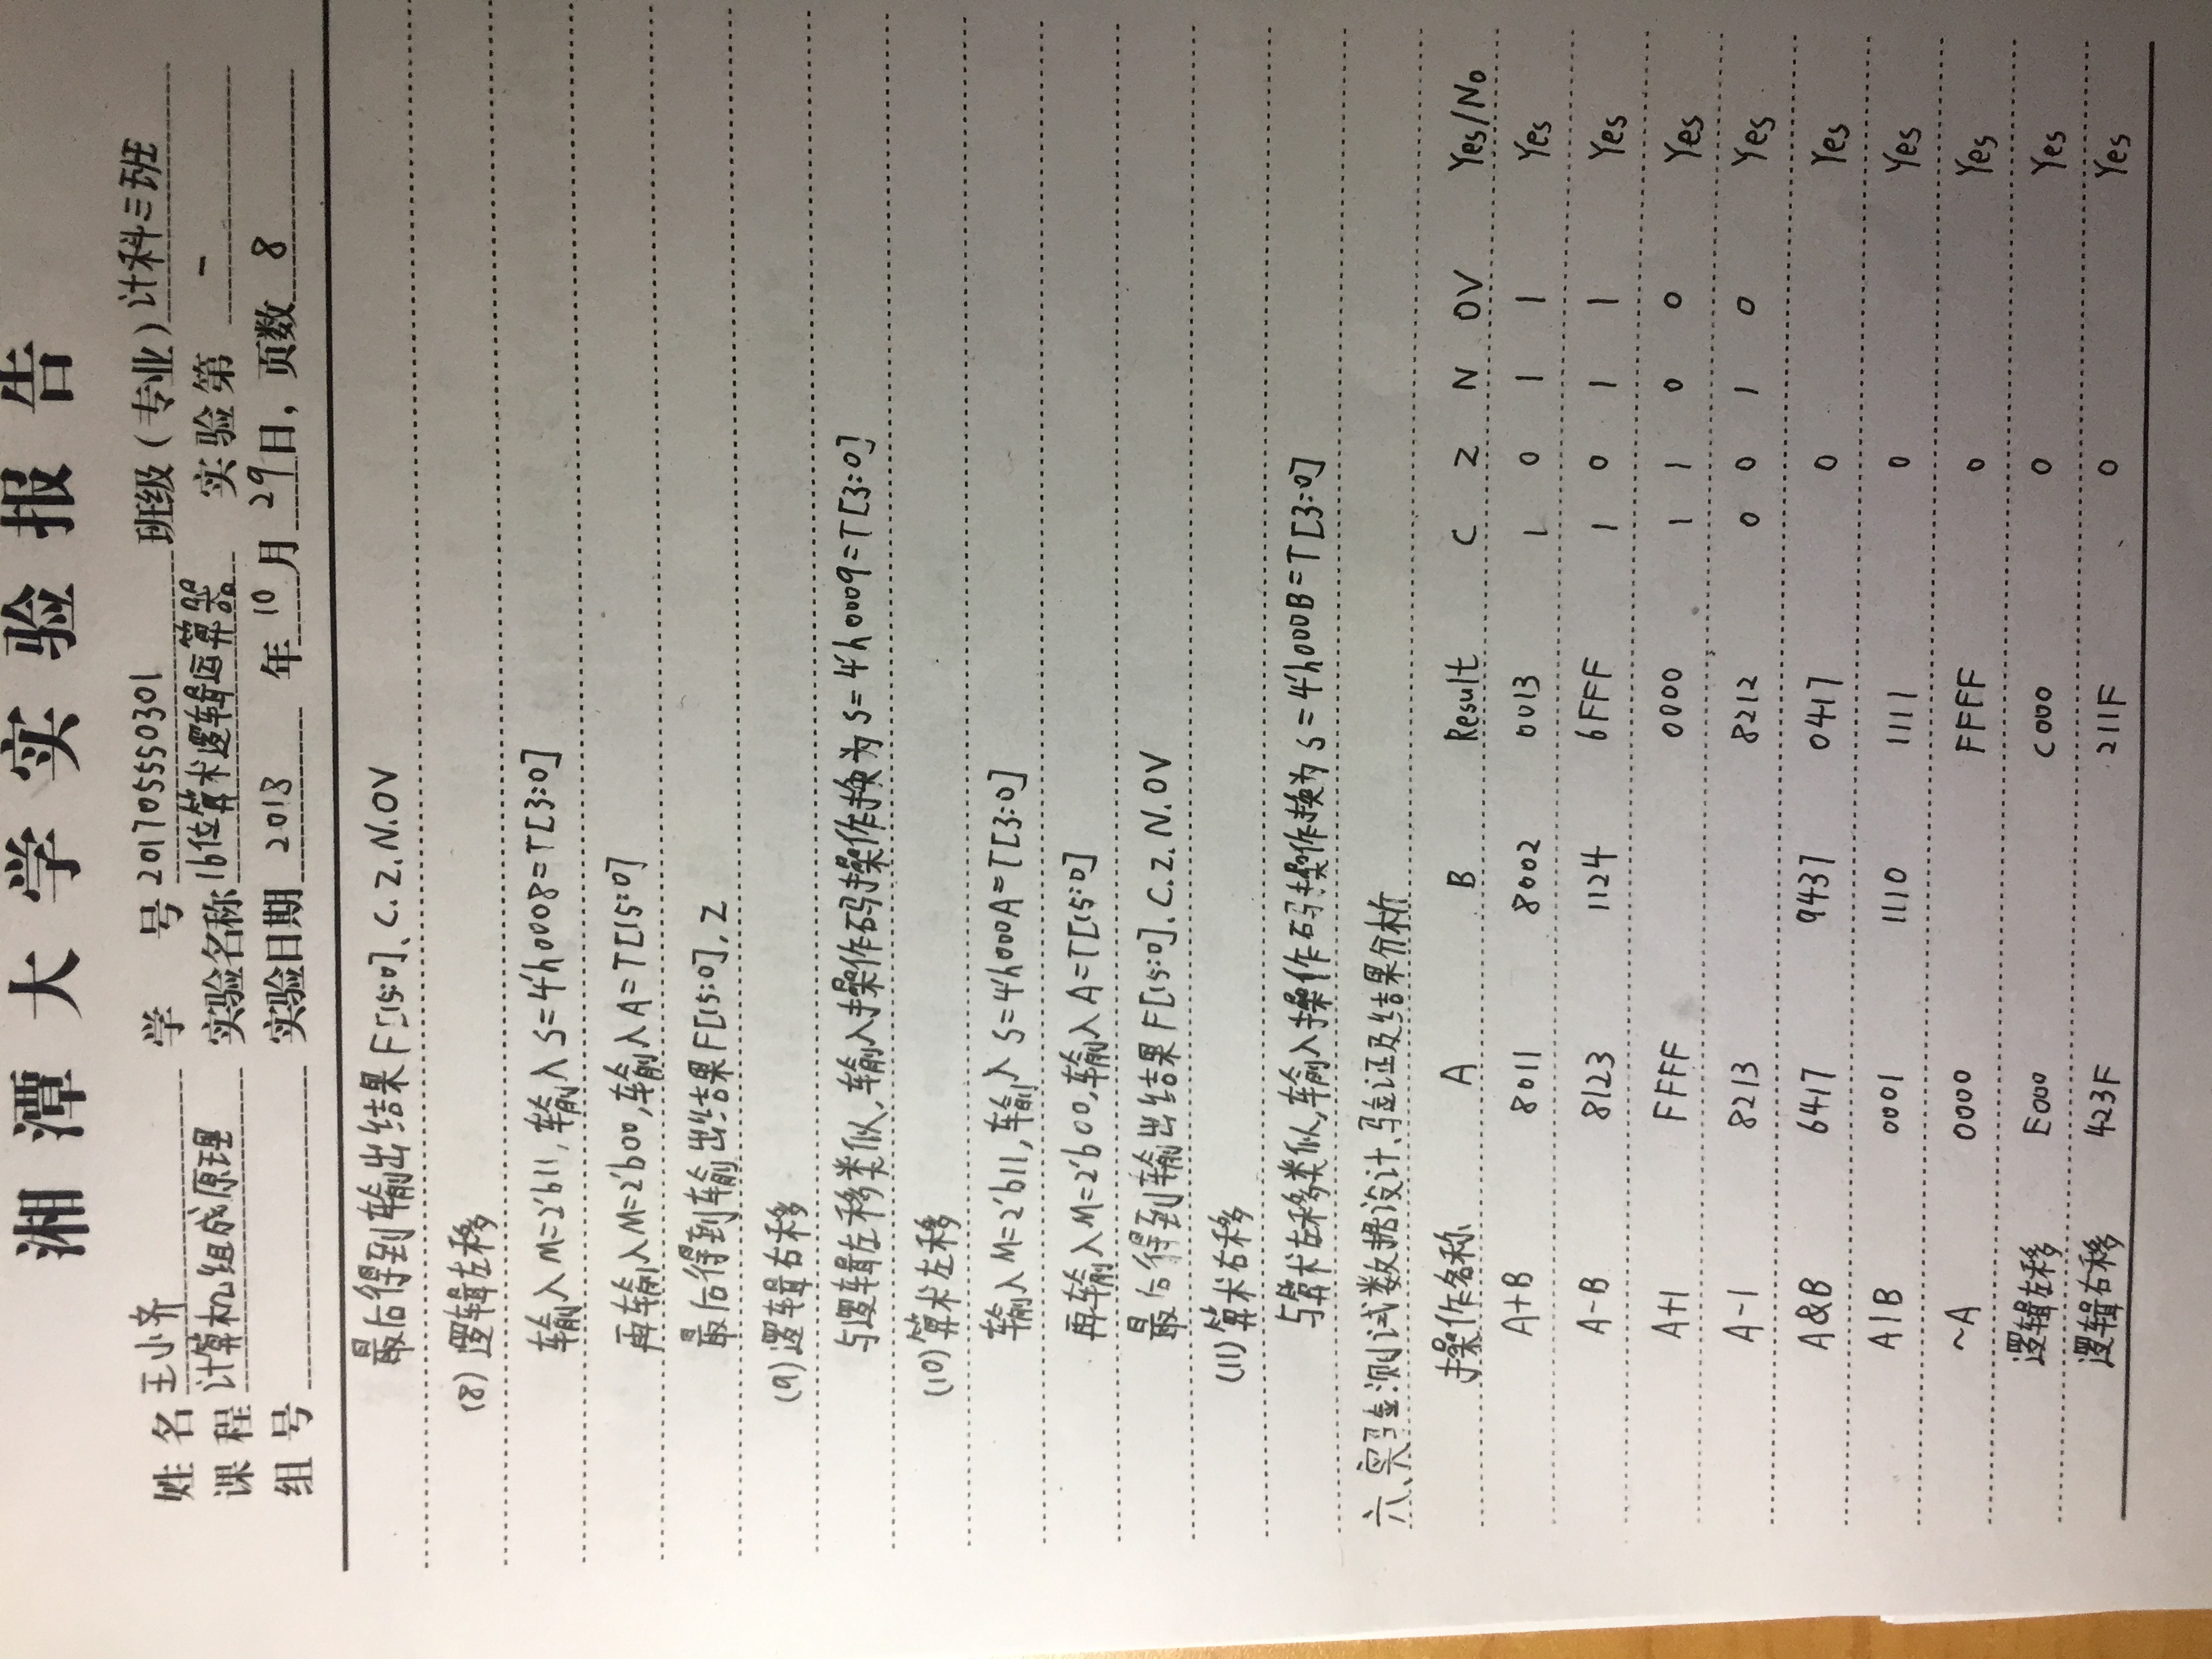 湘潭大学实验报告
姓名 王小齐 学号 201705550301 班级（专业）计科三班
课程 计算机组成原理 实验名称 16位算术逻辑运算器 实验第 一
组号 实验日期 2018 年 10 月 29 日，页数 8
最后得到输出结果F[15:0]、C.Z.N.OV
(8) 逻辑左移
输入M=2'b11,输入S=4'h0008=T[3:0]
再输入M=2'b00,输入A=T[15:0]
最后得到输出结果F[15:0]，Z
(9)逻辑右移
与逻辑左移类似,输入操作码操作换为S=4'h0009=T[3:0]
(10)算术左移
输入M=2'b11,输入S=4'h000A=T[3:0]
再输入M=2'b00,输入A=T[15:0]
最后得到输出结果F[15:0].C.Z.N.OV
(11)算术右移
与算术左移类似,输入操作码操作换为S=4'h000B=T[3:0]
六、实验测试数据设计、验证及结果分析
操作名称 A B Result C Z N OV Yes/No
A+B 8011 8002 0013 1 0 1 1 Yes
A-B 8123 1124 6FFF 1 0 1 1 Yes
A+1 FFFF 0000 1 1 0 0 Yes
A-1 8213 8212 0 0 1 0 Yes
A&B 6417 9437 0417 0 Yes
A|B 0001 1110 1111 0 Yes
~A 0000 FFFF 0 Yes
逻辑左移 E000 C000 0 Yes
逻辑右移 423F 211F 0 Yes